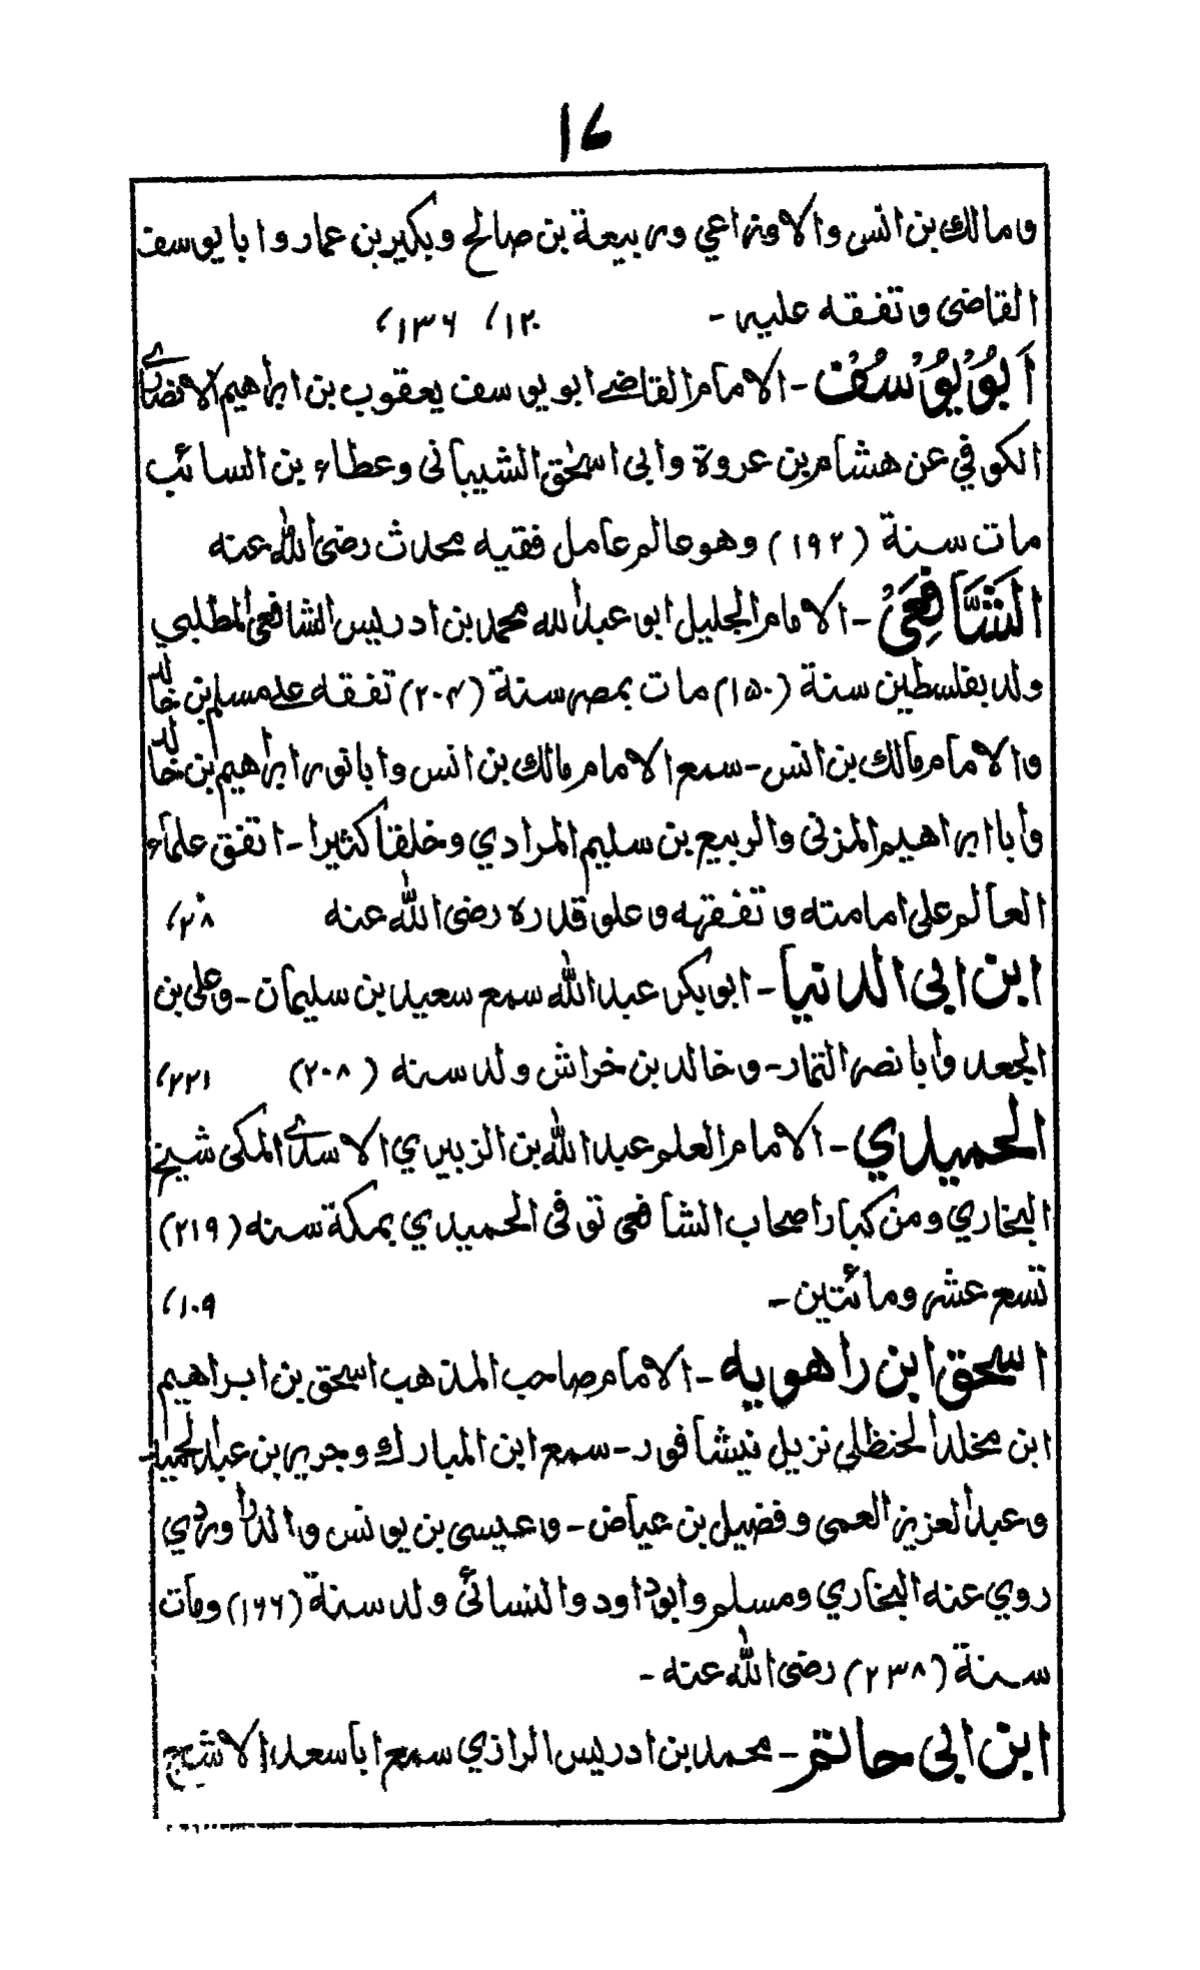 ١٦
ومالك بن انس والاوزاعي وربيعة بن صالح وبكير بن عمار وابا يوسف
القاضى وتفقه عليه - ١٢٠/ ١٣٦/
اَبُوْيُوْسُفْ - الامام القاضے ابو يوسف يعقوب بن ابراهيم الانصارے
الكوفي عن هشام بن عروة وابى اسحٰق الشيبانى وعطاء بن السائب
مات سنة (١٩٢) وهو عالم عامل فقيه محدث رضى الله عنه
الشَّافِعِيْ - الامام الجليل ابو عبد الله محمد بن ادريس الشافعى المطلبي
ولد بفلسطين سنة (١٥٠) مات بمصر سنة (٢٠٤) تفقه علے مسلم بن خالد
والامام مالك بن انس - سمع الامام مالك بن انس وابا ثور ابراهيم بن خالد
وابا ابراهيم المزنى والربيع بن سليم المرادي وخلقا كثيرا - اتفق علماء
العالم على امامته وتفقهه وعلو قدره رضى الله عنه ٢٠٨/
ابن ابى الدنيا - ابو بكر عبد الله سمع سعيد بن سليمان - وعلى بن
الجعد وابا نصر التمار - وخالد بن خراش ولد سنه (٢٠٨) ٢٢١/
الحميدي - الامام العلم عبد الله بن الزبيري الاسدے المكى شيخ
البخاري ومن كبار اصحاب الشافعى توفى الحميدي بمكة سنه (٢١٩)
تسع عشر ومائتين - ١٠٩/
اسحق ابن راهويه - الامام صاحب المذهب اسحق بن ابراهيم
ابن مخلد الحنظلى نزيل نيشافور - سمع ابن المبارك وجرير بن عبد الحميد
وعبد العزيز العمى وفضيل بن عياض - وعيسى بن يونس والدراوردي
روي عنه البخاري ومسلم وابو داود والنسائى ولد سنة (١٦٦) ومات
سنة (٢٣٨) رضى الله عنه -
ابن ابى حاتم - محمد بن ادريس الرازي سمع ابا سعد الاشج